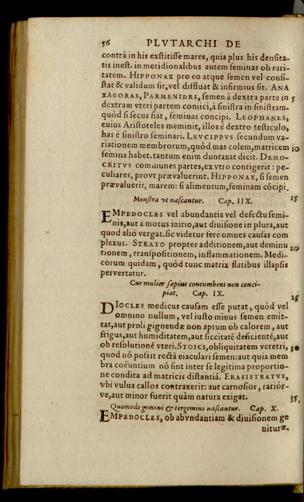 56 PLVTARCHI DE
contrà in his exstitisse mares, quia plus his densita-
tis inest. in meridionalibus autem feminas ob rari-
tatem. HIPPONAX pro eo atque semen vel consi-
stat & validum sit, vel diffluat & infirmus sit. ANA
XAGORAS, PARMENDES, semen à dextera parte in 5
dextram vteri partem coniici, à sinistra in sinistram.
quòd si secus fiat, feminas concipi. LEOPHANES,
cuius Aristoteles meminit, illos è dextro testiculo,
has è sinistro seminari. LEVCIPPVS secundum va-
riationem membrorum, quòd mas colem, matricem 10
femina habet. tantum enim duntaxat dicit. DEMO-
CRITVS communes partes, ex vtro contigerit: pe-
culiares, provt prævaluerint. HIPPONAX, si semen
prævaluerit, marem: si alimentum, feminam cõcipi.
Monstra vt nascantur. Cap. IIX. 15
EMPEDOCLES vel abundantia vel defectu semi-
nis, aut à motus initio, aut divisione in plura, aut
quod aliò vergat. sic videtur fere omneis causas com
plexus. STRATO propter additionem, aut deminu 20
tionem, transpositionem, inflammationem. Medi-
corum quidam, quòd tunc matrix flatibus illapsis
pervertatur.
Cur mulier sæpius concumbens non conci-
piat. Cap. IX. 25
DIOCLES medicus causam esse putat, quòd vel
omnino nullum, vel iusto minus semen emit-
tat, aut proli gignendæ non aptum ob calorem, aut
frigus, aut humiditatem, aut siccitatẽ deficientẽ, aut
ob resolutionẽ vteri. STOICI, obliquitatem veretri, 30
quod nõ possit rectà eiaculari semen: aut quia mem
bra coëuntium nõ sint inter se legitima proportio-
ne condita ad matricis distantiã. ERASISTRATVS,
vbi vulua callos contraxerit: aut carnosior, rarior-
ve, aut minor fuerit quàm natura exigat. 35
Quomodo gemini & tergemini nascantur. Cap. X.
EMPEDOCLES, ob abvndantiam & diuisionem ge
nituræ.